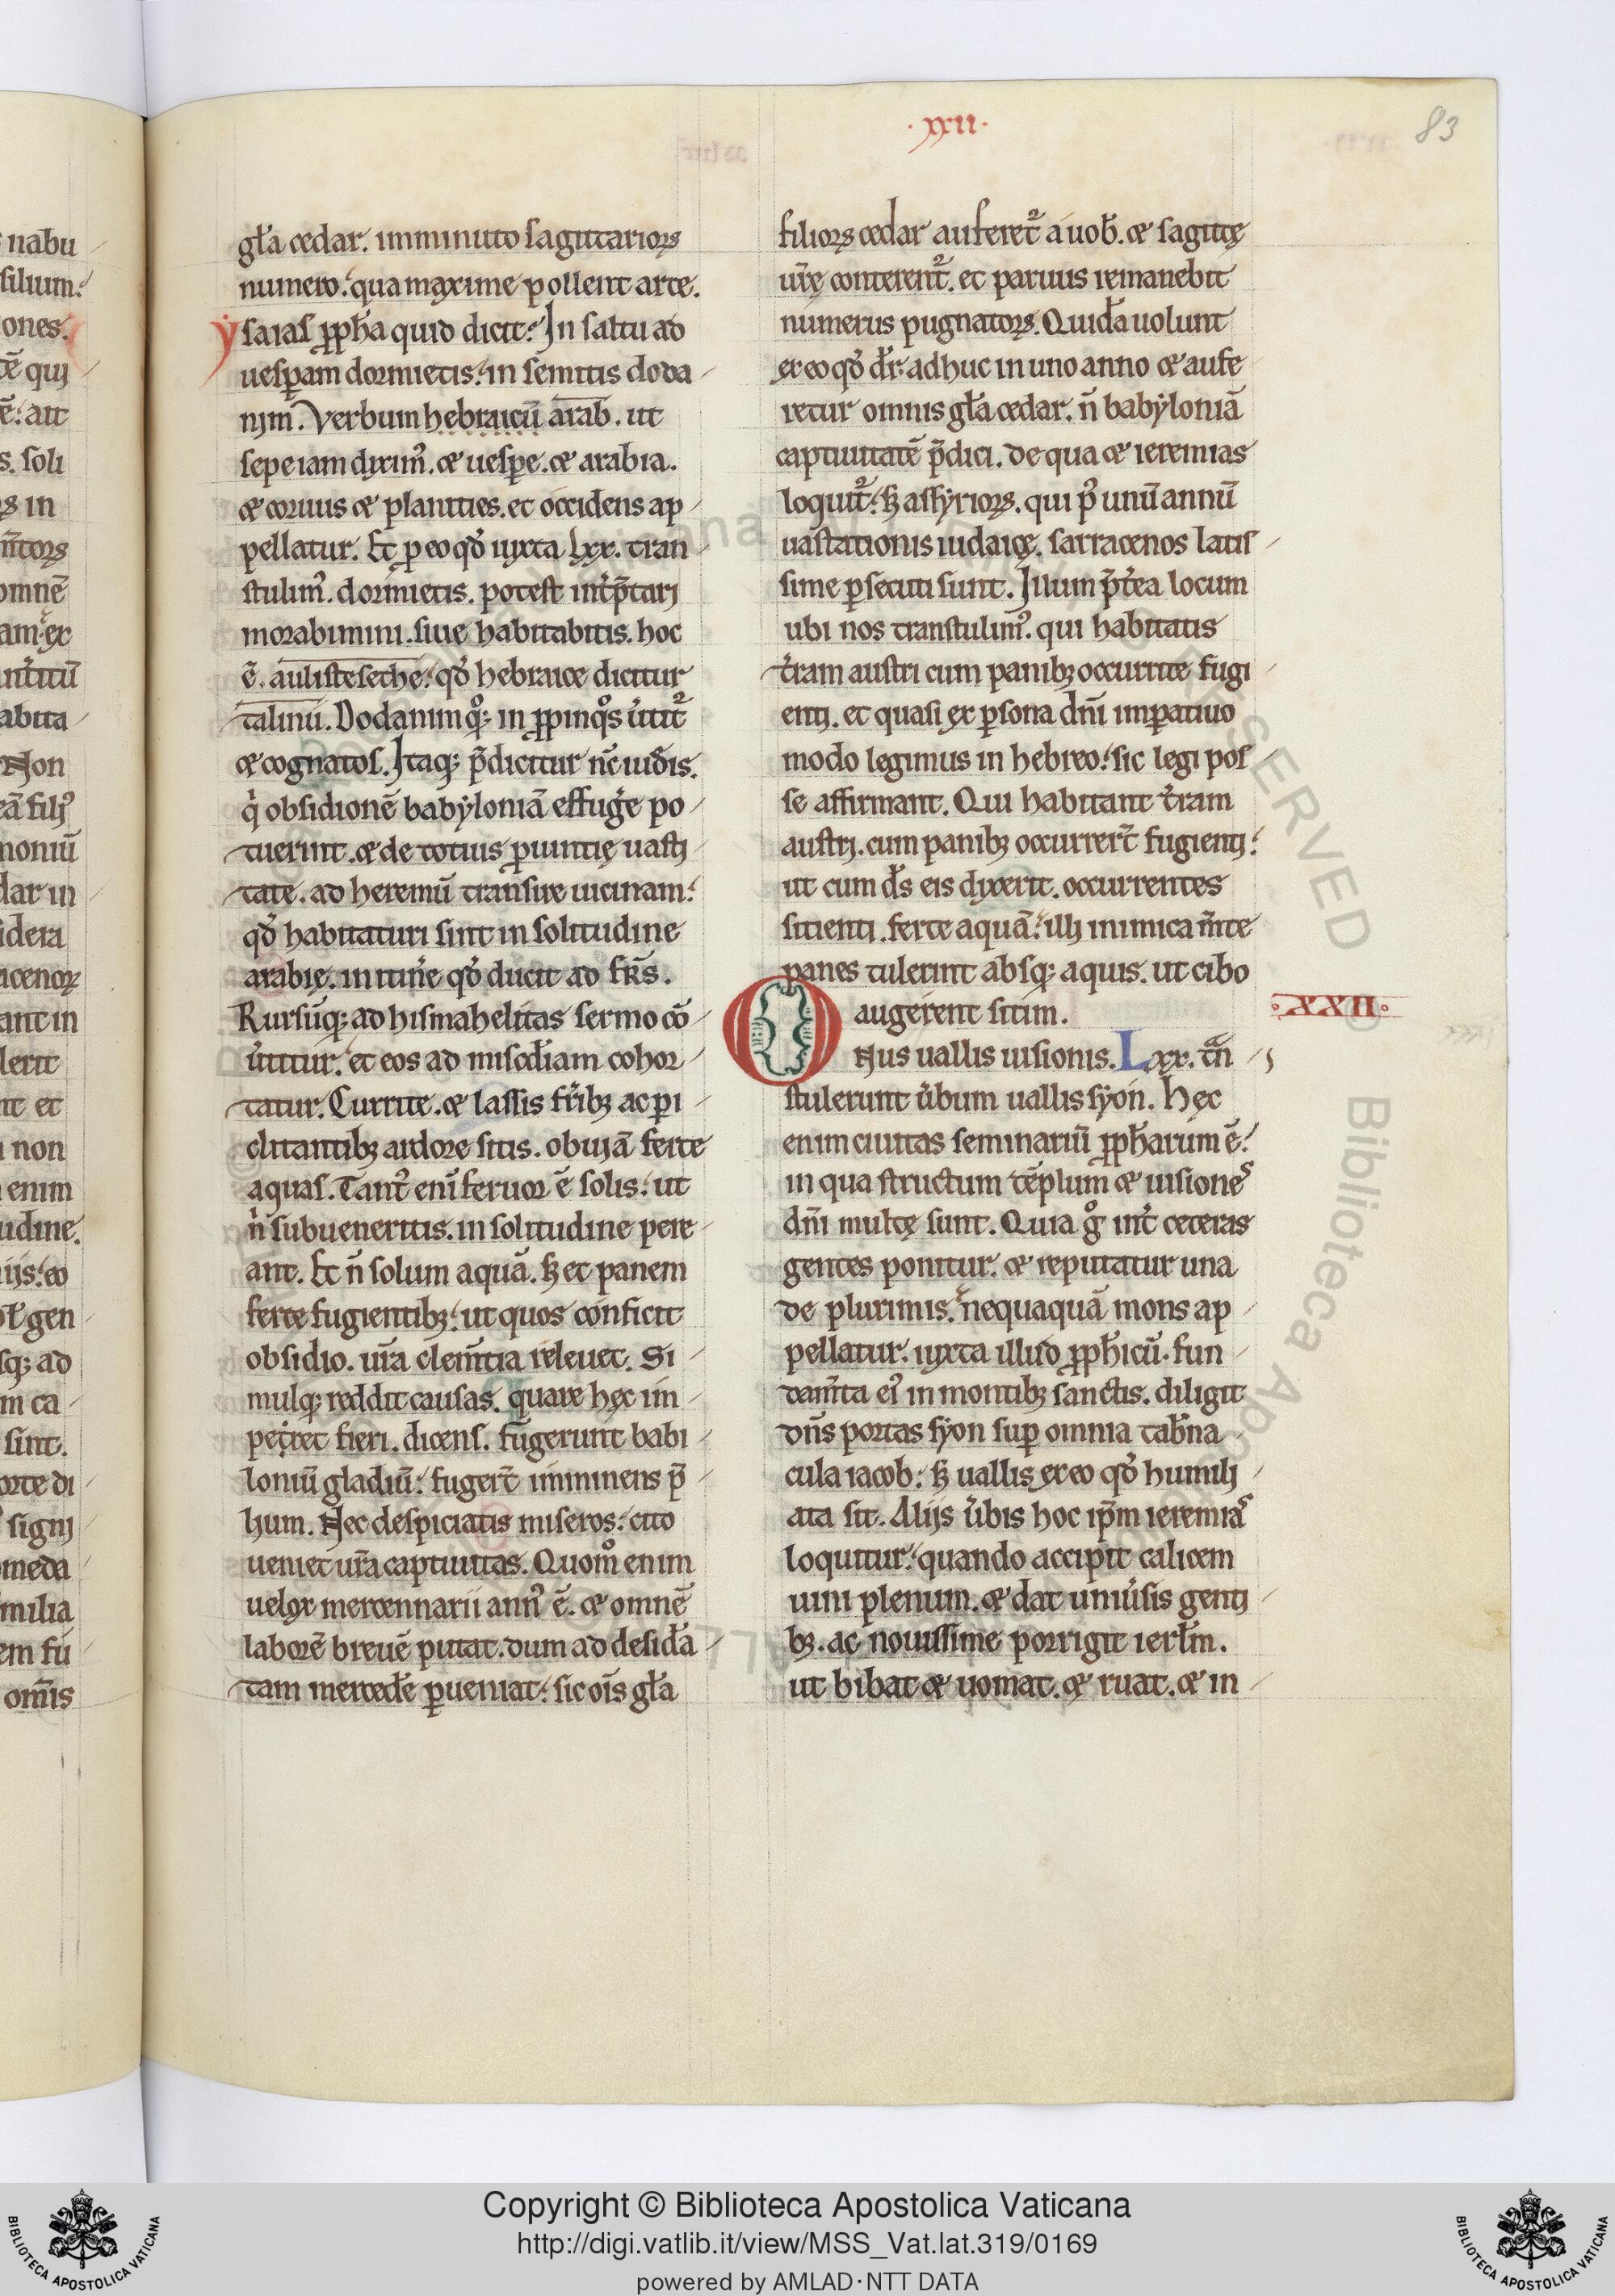 ·xxii·
83
gl̄a cedar. imminuto sagittarioꝝ
numero. qua maxime pollent arte.
ysaias ꝓph̄a quid dicit? In saltu ad
uesꝑam dormietis. in semitis doda
nim. Verbum hebraicū arab. ut
sepe iam diximꝰ. & uesꝑe. & arabia.
& coruus & planities. et occidens ap
pellatur. Et ꝑ eo qd̓ iuxta lxx. tran
stulimꝰ. dormietis. potest int̓p̄tari
morabimini. siue habitabitis. hoc
ē. aulistesethe. qd̓ hebraice dicitur
talinu. Dodanim qͦꝫ in ꝓpinqͦs u̓tit᷑
& cognatos. Itaqꝫ p̄dicitur nc̄ iud̓is.
qͥ obsidionē babyloniā effug̓e po
tuerint. & de totius ꝓuintię uasti
tate. ad heremū transire uicinam.
qd̓ habitaturi sint in solitudine
arabię. in itin̓e qd̓ ducit ad fr̄s.
Rursūqꝫ ad hismahelitas sermo cō
u̓titur. et eos ad misc̓diam cohor
tatur. Currite. & lassis fr̄ibꝫ ac ꝑi
clitantibꝫ ardore sitis. obuiā ferte
aquas. Tantꝰ eni̅ feruor ē solis. ut
nͥ subueneritis. in solitudine pere
ant. Et n̄ solum aquā. sꝫ et panem
ferte fugientibꝫ. ut quos conficit
obsidio. ur̄a clem̄tia releuet. Si
mulqꝫ reddit causas. quare hęc im
petret fieri. dicens. fugerunt babi
loniū gladiū. fuger̄t imminens p̄
lium. Nec despiciatis miseros. cito
ueniet ur̄a captiuitas. Quomͦ enim
uelox mercennarii annꝰ ē. & omnē
laborē breuē putat. dum ad desid̓a
tam mercedē ꝑueniat. sic oīs gl̄a
filioꝝ cedar auferet᷑ a uob̄. & sagittę
ur̄ę conterent᷑. et paruus remanebit
numerus pugnatoꝝ. Quidā uolunt
ex eo qd̓ dr̄. adhuc in uno anno & aufe
retur omnis gl̄a cedar. n̄ babyloniā
captiuitatē p̄dici. de qua & ieremias
loquit᷑. sꝫ assyrioꝝ. qui pꝰ unū annū
uastationis iudaicę. sarracenos latis
sime ꝑsecuti sunt. Illum p̄t̓ea locum
ubi nos transtulimꝰ. qui habitatis
t̓ram austri cum panibꝫ occurrite fugi
enti. et quasi ex ꝑsona dn̄i imꝑatiuo
modo legimus in hebreo. sic legi pos
se affirmant. Qui habitant t̓ram
austri. cum panibꝫ occurrer̄t fugienti.
ut cum d̄s eis dixerit. occurrentes
sitienti ferte aquā. illi inimica m̄te
panes tulerint absqꝫ aquis. ut cibo
augerent sitim.
·XXII·
Onus uallis uisionis. Lxx. tr̄n
stulerunt u̓bum uallis syon. Hęc
enim ciuitas seminariū ꝓph̄arum ē.
in qua structum tēplum & uisiones
dn̄i multę sunt. Quia gͦ int̓ ceteras
gentes ponitur. & reputatur una
de plurimis. nequaquā mons ap
pellatur. iuxta illud ꝓph̄icū. fun
dam̄ta eiꝰ in montibꝫ sanctis. diligit
dn̄s portas syon suꝑ omnia tab̓na
cula iacob. sꝫ uallis ex eo qd̓ humili
ata sit. Alijs u̓bis hoc ip̄m ieremias
loquitur. quando accipit calicem
uini plenum. & dat uniu̓sis genti
bꝫ. ac nouissime porrigit ierl̄m.
ut bibat & uomat. & ruat. & in
Copyright © Biblioteca Apostolica Vaticana
http://digi.vatlib.it/view/MSS_Vat.lat.319/0169
powered by AMLAD·NTT DATA
BIBLIOTECA APOSTOLICA VATICANA
BIBLIOTECA APOSTOLICA VATICANA